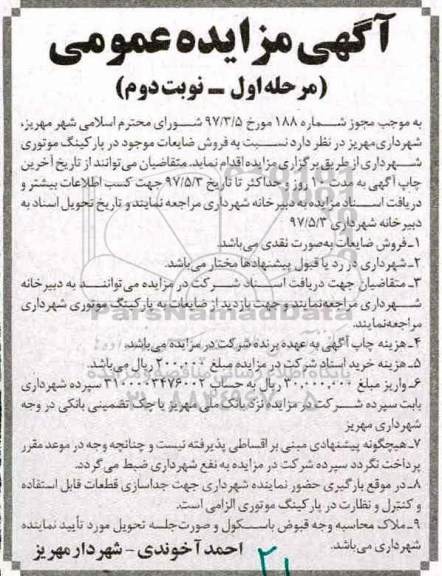 آگهی مزایده عمومی
(مرحله اول ــ نوبت دوم)
به موجب مجوز شماره ۱۸۸ مورخ ۹۷/۳/۵ شورای محترم اسلامی شهر مهریز،
شهرداری مهریز در نظر دارد نسبت به فروش ضایعات موجود در پارکینگ موتوری
شهرداری از طریق برگزاری مزایده اقدام نماید. متقاضیان می‌توانند از تاریخ آخرین
چاپ آگهی به مدت ۱۰ روز و حداکثر تا تاریخ ۹۷/۵/۳ جهت کسب اطلاعات بیشتر و
دریافت اسناد مزایده به دبیرخانه شهرداری مراجعه نمایند و تاریخ تحویل اسناد به
دبیرخانه شهرداری ۹۷/۵/۳
۱ـ فروش ضایعات به‌صورت نقدی می‌باشد.
۲ـ شهرداری در رد یا قبول پیشنهادها مختار می‌باشد.
۳ـ متقاضیان جهت دریافت اسناد شرکت در مزایده می‌توانند به دبیرخانه
شهرداری مراجعه نمایند و جهت بازدید از ضایعات به پارکینگ موتوری شهرداری
مراجعه نمایند.
ParsNamadData
۴ـ هزینه چاپ آگهی به عهده برنده شرکت در مزایده می‌باشد.
۵ـ هزینه خرید اسناد شرکت در مزایده مبلغ ۳۰۰۰۰۰ ریال می‌باشد.
۶ـ واریز مبلغ ۳۰,۰۰۰,۰۰۰ ریال به حساب ۳۱۰۰۰۰۳۴۷۶۰۰۲ سپرده شهرداری
بابت سپرده شرکت در مزایده نزد بانک ملی مهریز یا چک تضمینی بانکی در وجه
شهرداری مهریز
۷ـ هیچگونه پیشنهادی مبنی بر اقساطی پذیرفته نیست و چنانچه وجه در موعد مقرر
پرداخت نگردد سپرده شرکت در مزایده به نفع شهرداری ضبط می‌گردد.
۸ـ در موقع بارگیری حضور نماینده شهرداری جهت جداسازی قطعات قابل استفاده
و کنترل و نظارت در پارکینگ موتوری الزامی است.
۹ـ ملاک محاسبه وجه قبوض باسکول و صورت‌جلسه تحویل مورد تأیید نماینده
شهرداری می‌باشد.
احمد آخوندی - شهردار مهریز
۲۱